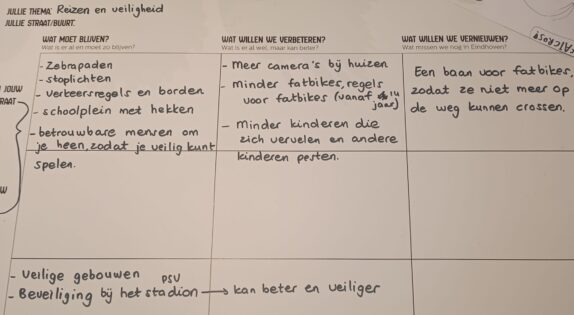 JULLIE THEMA: Reizen en veiligheid
JULLIE STRAAT/BUURT:
WAT MOET BLIJVEN?
Wat is er al en moet zo blijven?
- Zebrapaden
- stoplichten
- verkeersregels en borden
- schoolplein met hekken
- betrouwbare mensen om
je heen, zodat je veilig kunt
spelen.
WAT WILLEN WE VERBETEREN?
Wat is er al wel, maar kan beter?
- Meer camera's bij huizen
- minder fatbikes, regels
voor fatbikes (vanaf 14
jaar)
- Minder kinderen die
zich vervelen en andere
kinderen pesten.
WAT WILLEN WE VERNIEUWEN?
Wat missen we nog in Eindhoven?
Een baan voor fatbikes,
zodat ze niet meer op
de weg kunnen crossen.
JOUW
RAAT
W
- Veilige gebouwen
- Beveiliging bij het PSV stadion → kan beter en veiliger